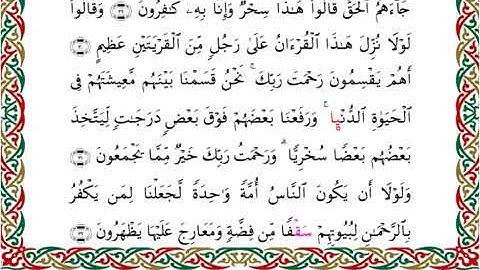 جَآءَهُمُ ٱلْحَقُّ قَالُوا۟ هَـٰذَا سِحْرٌ وَإِنَّا بِهِۦ كَـٰفِرُونَ ٣٠ وَقَالُوا۟
لَوْلَا نُزِّلَ هَـٰذَا ٱلْقُرْءَانُ عَلَىٰ رَجُلٍ مِّنَ ٱلْقَرْيَتَيْنِ عَظِيمٍ ٣١
أَهُمْ يَقْسِمُونَ رَحْمَتَ رَبِّكَ ۚ نَحْنُ قَسَمْنَا بَيْنَهُم مَّعِيشَتَهُمْ فِى
ٱلْحَيَوٰةِ ٱلدُّنْيَا ۚ وَرَفَعْنَا بَعْضَهُمْ فَوْقَ بَعْضٍ دَرَجَـٰتٍ لِّيَتَّخِذَ
بَعْضُهُم بَعْضًا سُخْرِيًّا ۗ وَرَحْمَتُ رَبِّكَ خَيْرٌ مِّمَّا يَجْمَعُونَ ٣٢
وَلَوْلَآ أَن يَكُونَ ٱلنَّاسُ أُمَّةً وَٰحِدَةً لَّجَعَلْنَا لِمَن يَكْفُرُ
بِٱلرَّحْمَـٰنِ لِبُيُوتِهِمْ سَقْفًا مِّن فِضَّةٍ وَمَعَارِجَ عَلَيْهَا يَظْهَرُونَ ٣٣